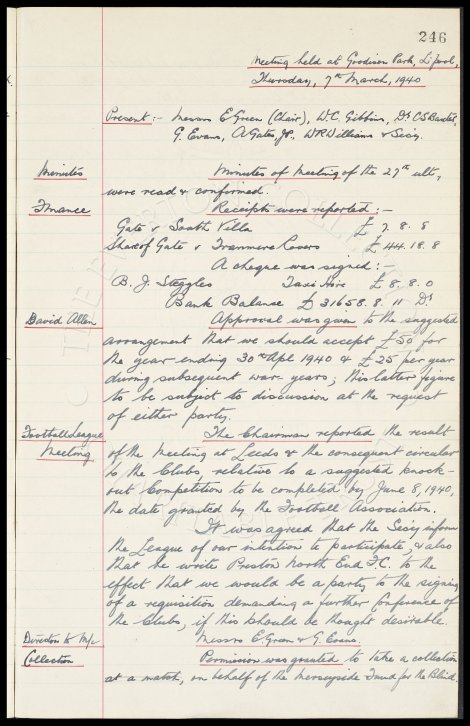 246
Meeting held at Goodison Park, L'pool,
Thursday, 7th March, 1940
Present :- Messrs E. Green (Chair), W.C. Gibbins, Dr C.S. Baxter,
G. Evans, A. Gates, Jr., W.R. Williams & Secy.
Minutes Minutes of Meeting of the 27th ult,
were read & confirmed.
Finance Receipts were reported :-
Gate v South Villa £ 7. 8. 8
Share of Gate v Tranmere Rovers £ 44. 18. 8
A cheque was signed :-
B. J. Steggles Taxi Hire £ 8. 8. 0
Bank Balance £ 31658. 8. 11 Dr
David Allen Approval was given to the suggested
arrangement that we should accept £50 for
the year ending 30th Apl 1940 & £25 per year
during subsequent war years; this latter figure
to be subject to discussion at the request
of either party.
Football League The Chairman reported the result
Meeting of the Meeting at Leeds & the consequent circular
to the Clubs, relative to a suggested knock-
out Competition to be completed by June 8, 1940,
the date granted by the Football Association.
It was agreed that the Secy inform
the League of our intention to participate, & also
that he write Preston North End F.C. to the
effect that we would be a party to the signing
of a requisition demanding a further Conference of
the Clubs, if this should be thought desirable.
Directors to M/c Messrs E. Green & G. Evans.
Collection Permission was granted to take a collection
at a match, on behalf of the Merseyside Fund for the Blind.